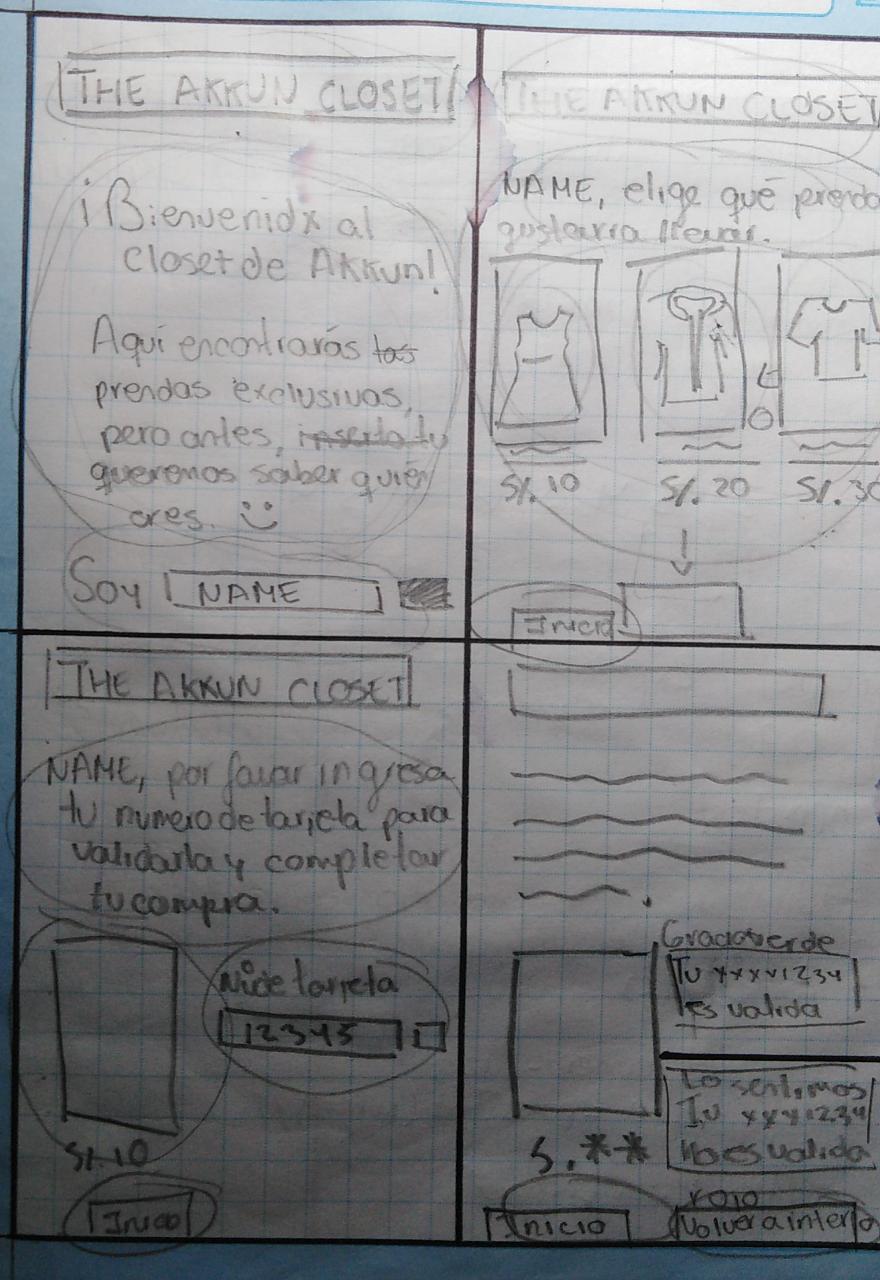 THE AKKUN CLOSET
¡Bienvenidx al
closet de Akkun!
Aquí encontrarás las
prendas exclusivas,
pero antes, inserta tu
queremos saber quién
eres.
Soy NAME
THE AKKUN CLOSET
NAME, elige qué prenda
gustaría llevar.
S/. 10 S/. 20 S/. 30
Inicio
THE AKKUN CLOSET
NAME, por favor ingresa
tu numero de tarjeta para
validarla y completar
tu compra.
N° de tarjeta
12345
S/. 10
Inicio
verde
Tu xxxx1234
es valida
Lo sentimos
Tu xxx1234
No es valida
S.**
rojo
Inicio
Volver a